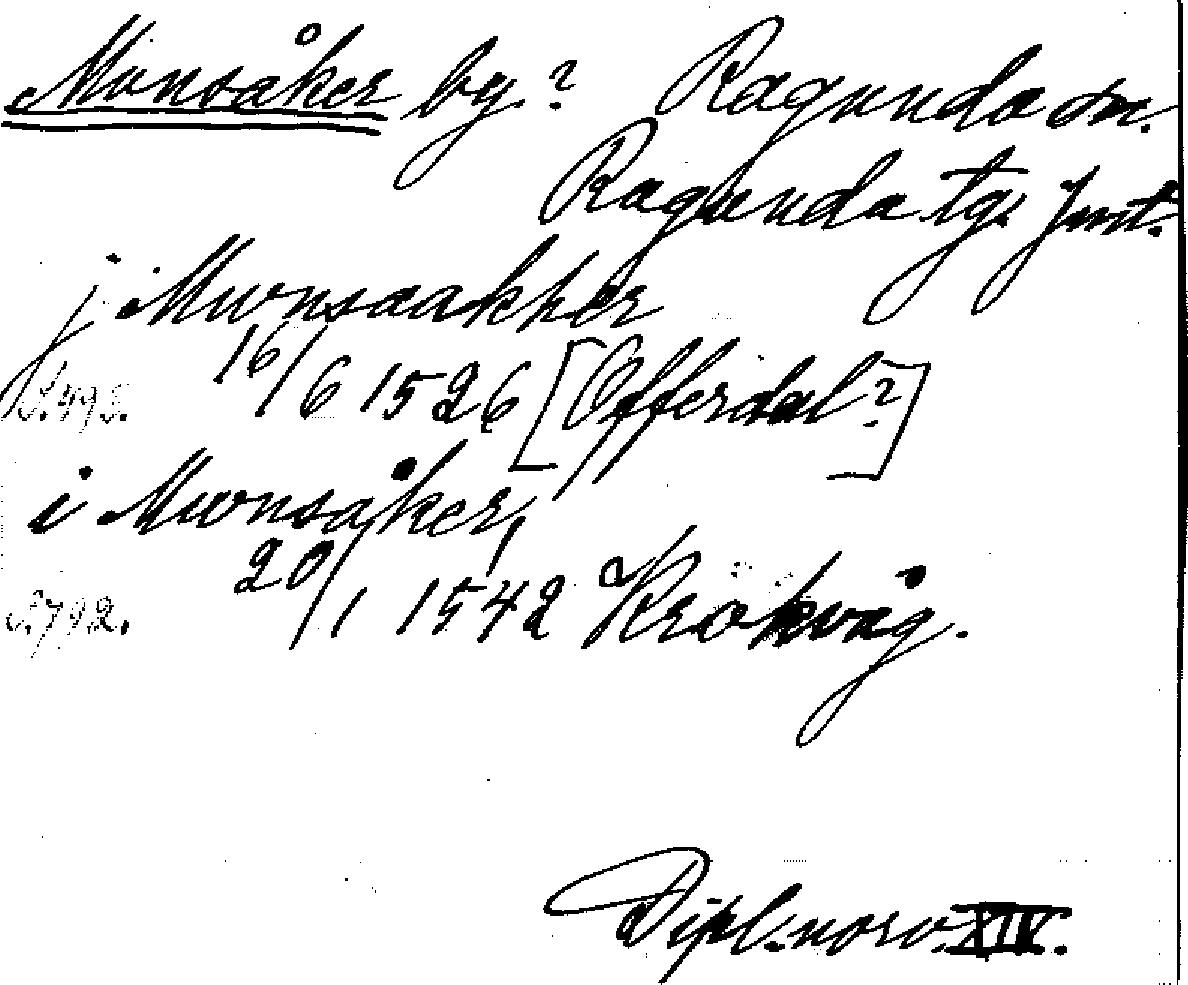 Munsåker by? Ragunda sn.
Ragunda tg. Jmt.
j Mwnsaakher
S. 495. 16/6 1526 [Offerdal?]
i Mwnsåker,
S. 792. 20/1 1542 Krokvåg.
Dipl. norv. XIV.